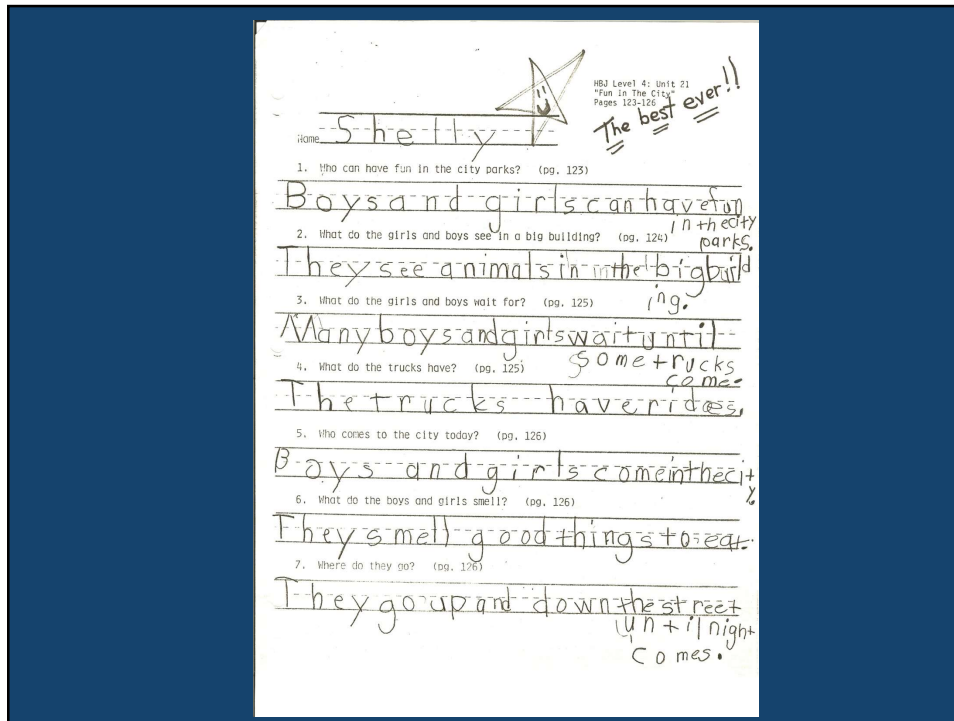 HBJ Level 4: Unit 21
"Fun In The City"
Pages 123-126
The best ever!!
Name Shelly
1. Who can have fun in the city parks? (pg. 123)
Boys and girls can have fun
in the city
parks.
2. What do the girls and boys see in a big building? (pg. 124)
They see animals in the big build
ing.
3. What do the girls and boys wait for? (pg. 125)
Many boys and girls wait until
some trucks
come.
4. What do the trucks have? (pg. 125)
The trucks have rides.
5. Who comes to the city today? (pg. 126)
Boys and girls come in the cit
y.
6. What do the boys and girls smell? (pg. 126)
They smell good things to eat.
7. Where do they go? (pg. 126)
They go up and down the street
until night
comes.